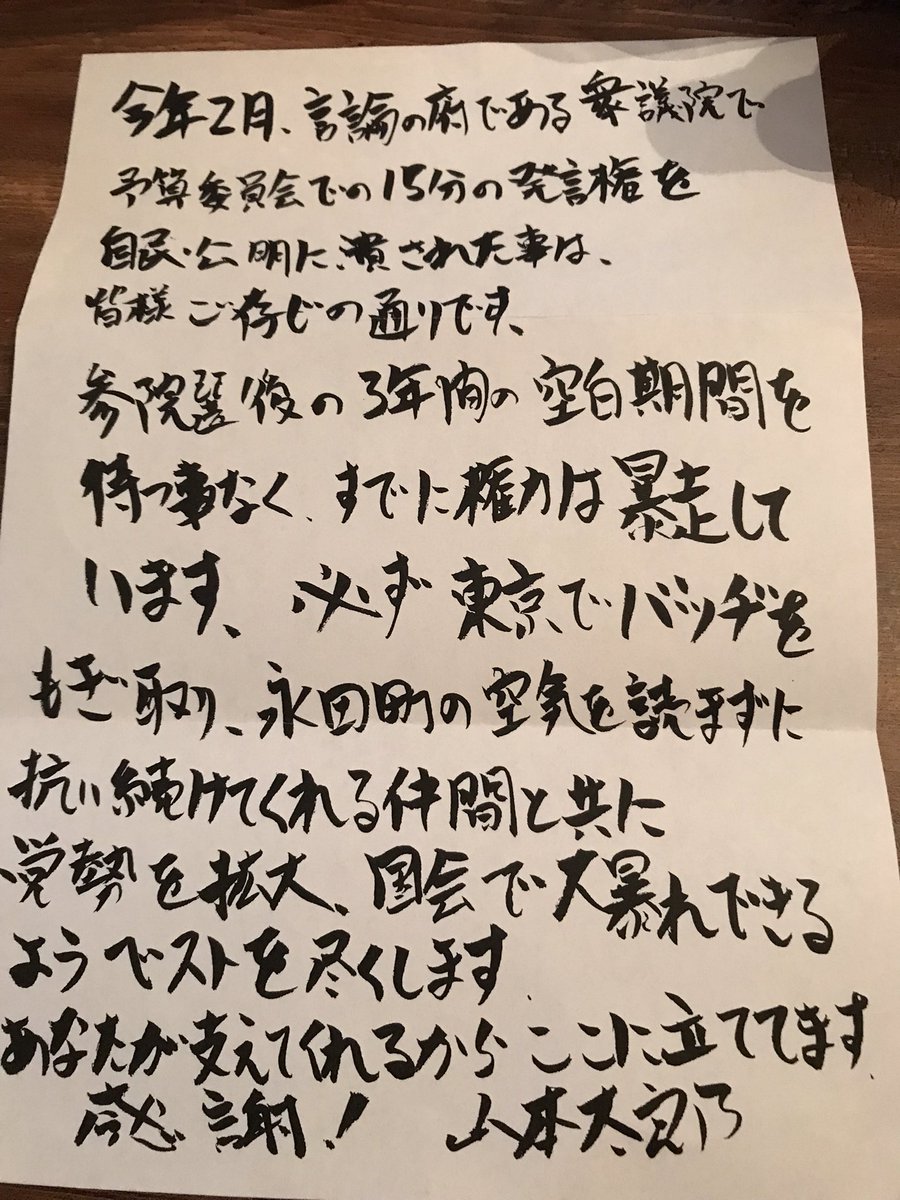 今年2月、言論の府である衆議院で
予算委員会での15分の発言権を
自民・公明に潰された事は、
皆様ご存じの通りです、
参院選後の3年間の空白期間を
待つ事なく、すでに権力は暴走して
います、必ず東京でバッヂを
もぎ取り、永田町の空気を読まずに
抗い続けてくれる仲間と共に
党勢を拡大、国会で大暴れできる
ようベストを尽くします
あなたが支えてくれるからここに立ててます
感謝! 山本太郎